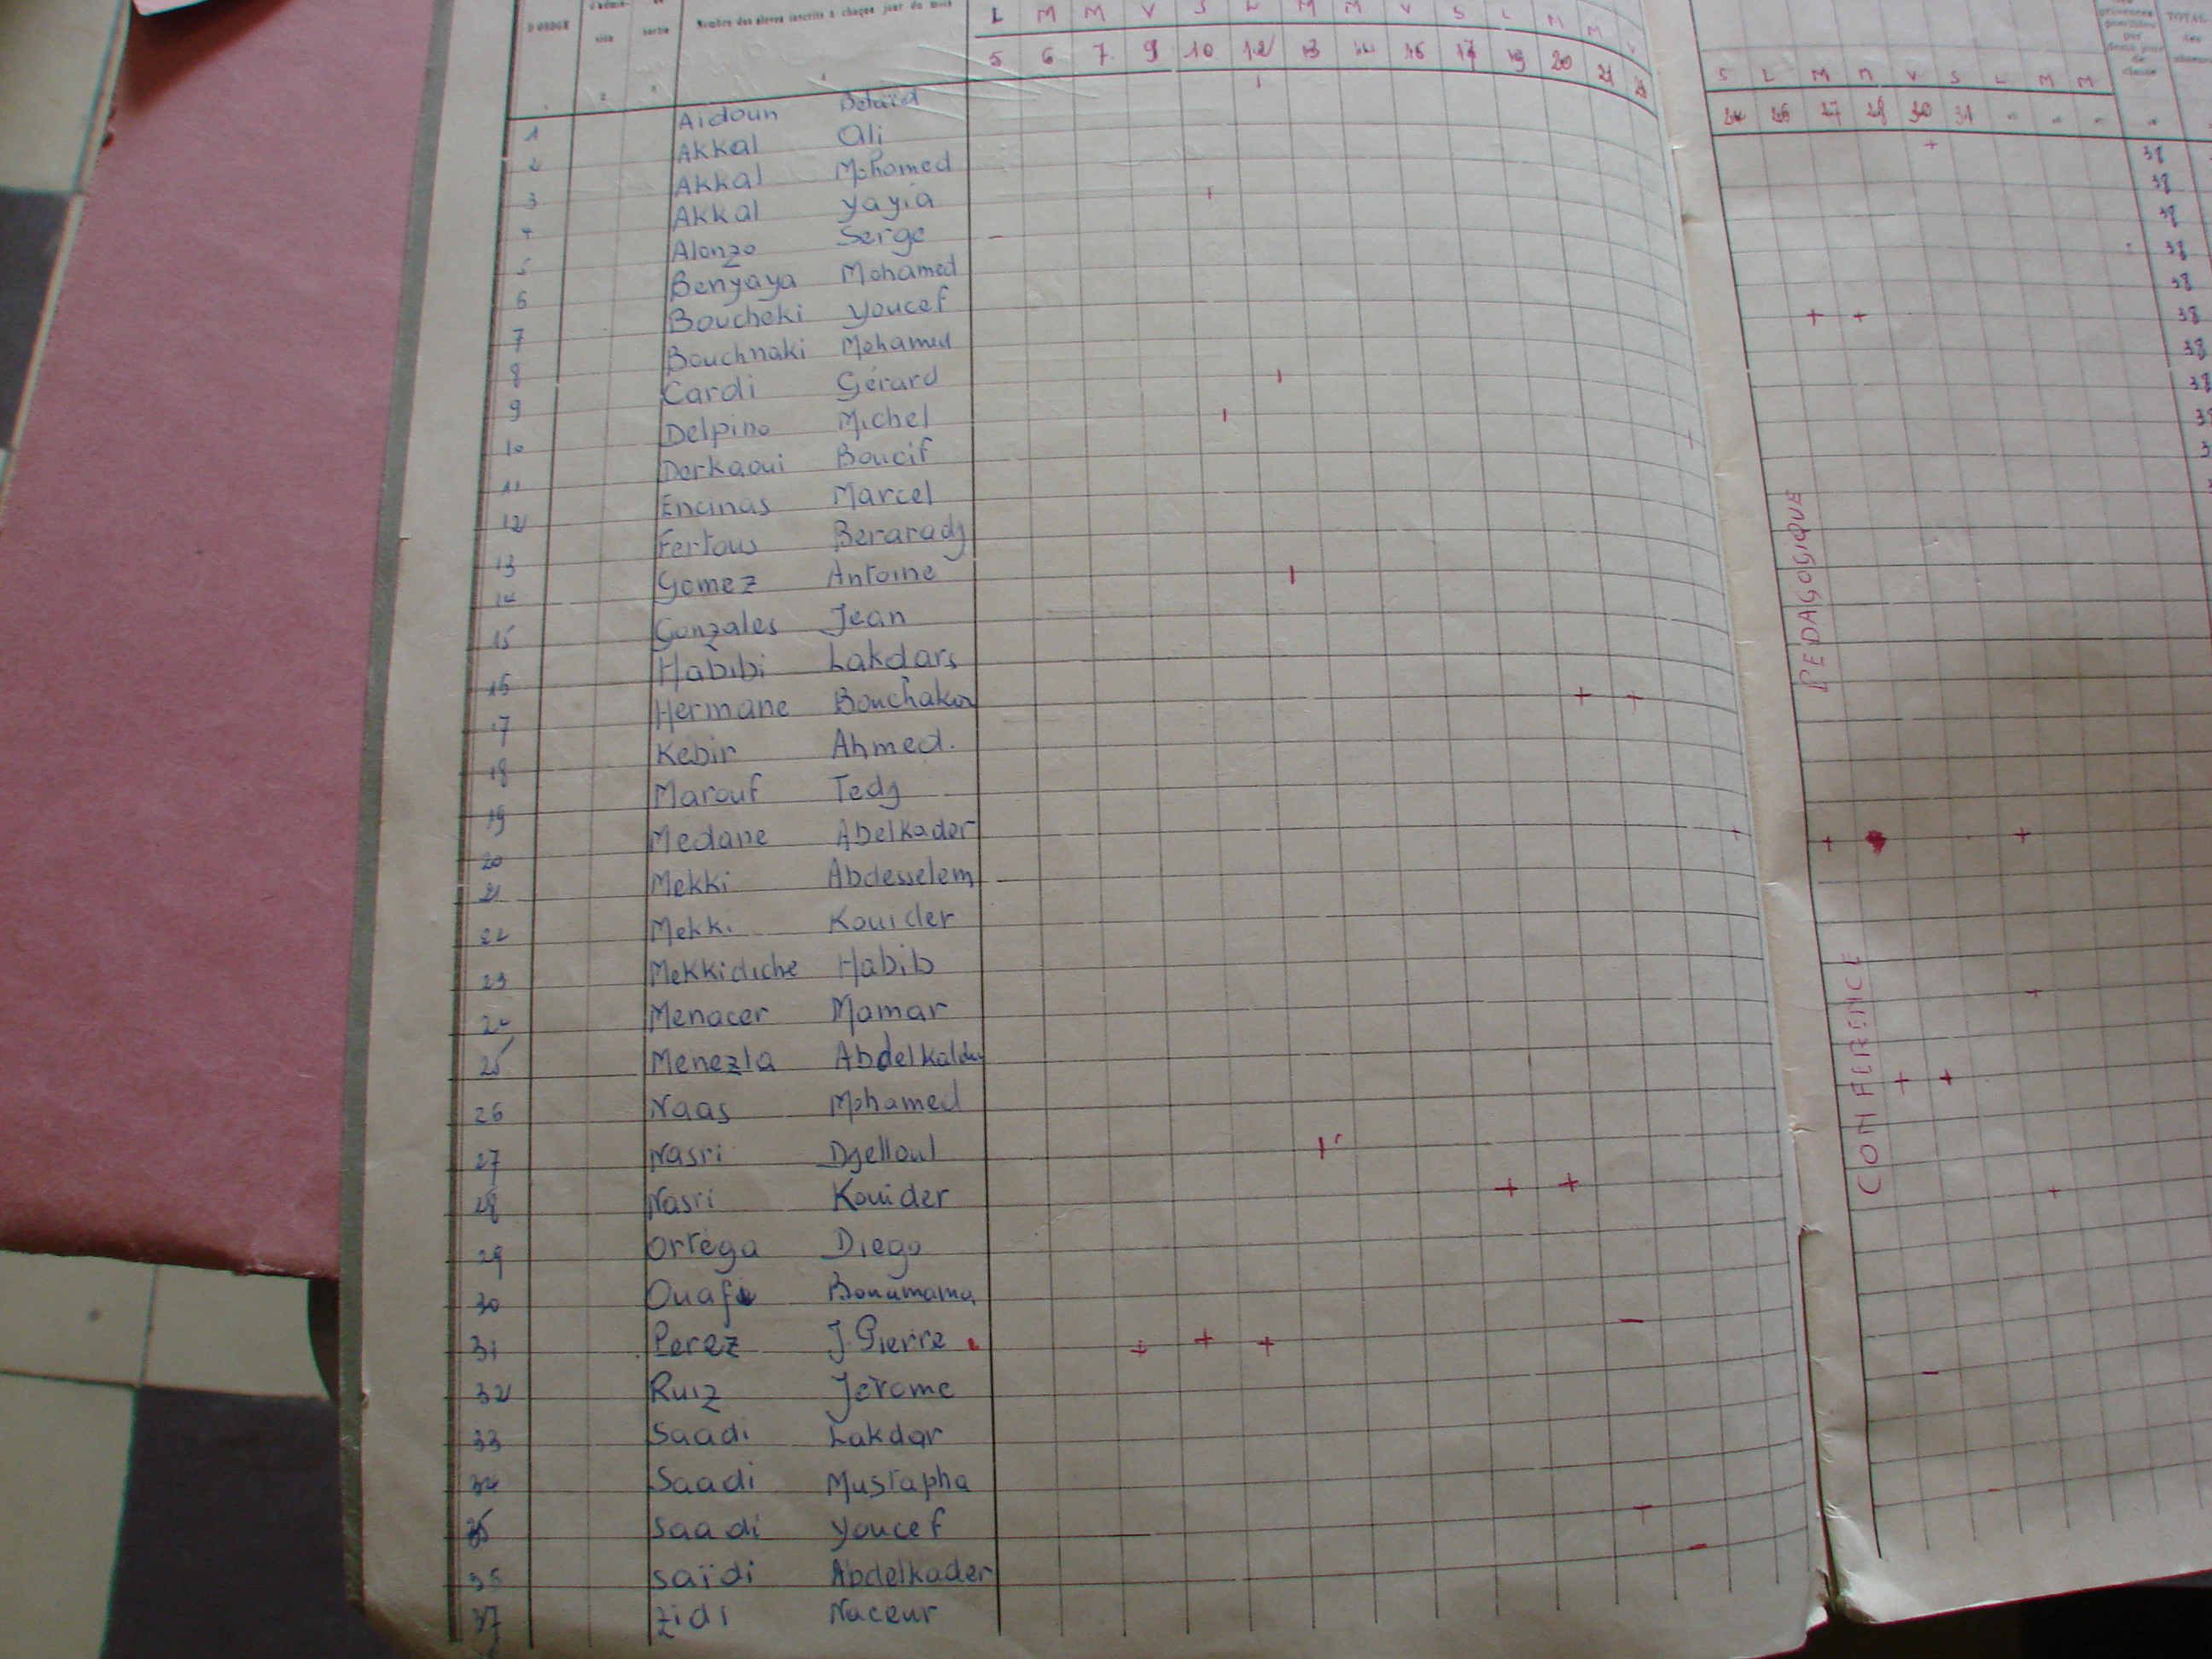 D'ORDRE sortie Nombre des élèves inscrits à chaque jour du mois
L M M V S L M M V S L M M V
5 6 7 9 10 12 13 14 16 17 19 20 21
1 Aidoun
2 Akkal Ali
3 Akkal Mohamed
4 Akkal yayia
5 Alonzo Serge
6 Benyaya Mohamed
7 Boucheki youcef
8 Bouchnaki Mohamed
9 Cardi Gérard
10 Delpino Michel
11 Derkaoui Boucif
12 Encinas Marcel
13 Fertous Beraradj
14 Gomez Antoine
15 Gonzales Jean
16 Habibi Lakdars
17 Hermane
18 Kebir Ahmed.
19 Marouf Tedj
20 Medane Abelkader
21 Mekki Abdesselem
22 Mekki Kouider
23 Mekkidiche Habib
24 Menacer Mamar
25 Menezla
26 Naas Mohamed
27 Nasri Djelloul
28 Nasri Kouider
29 Ortéga Diego
30
31 Perez J. Pierre
32 Ruiz Jérome
33 Saadi Lakdar
34 Saadi Mustapha
35 Saadi youcef
36 Saïdi Abdelkader
37 Zidi Naceur
S L M M V S L M M
24 26 27 28 30 31
présences possibles par demi-jour de classe
TOTAL des
38
38
38
38
38
38
38
38
CONFERENCE PEDAGOGIQUE